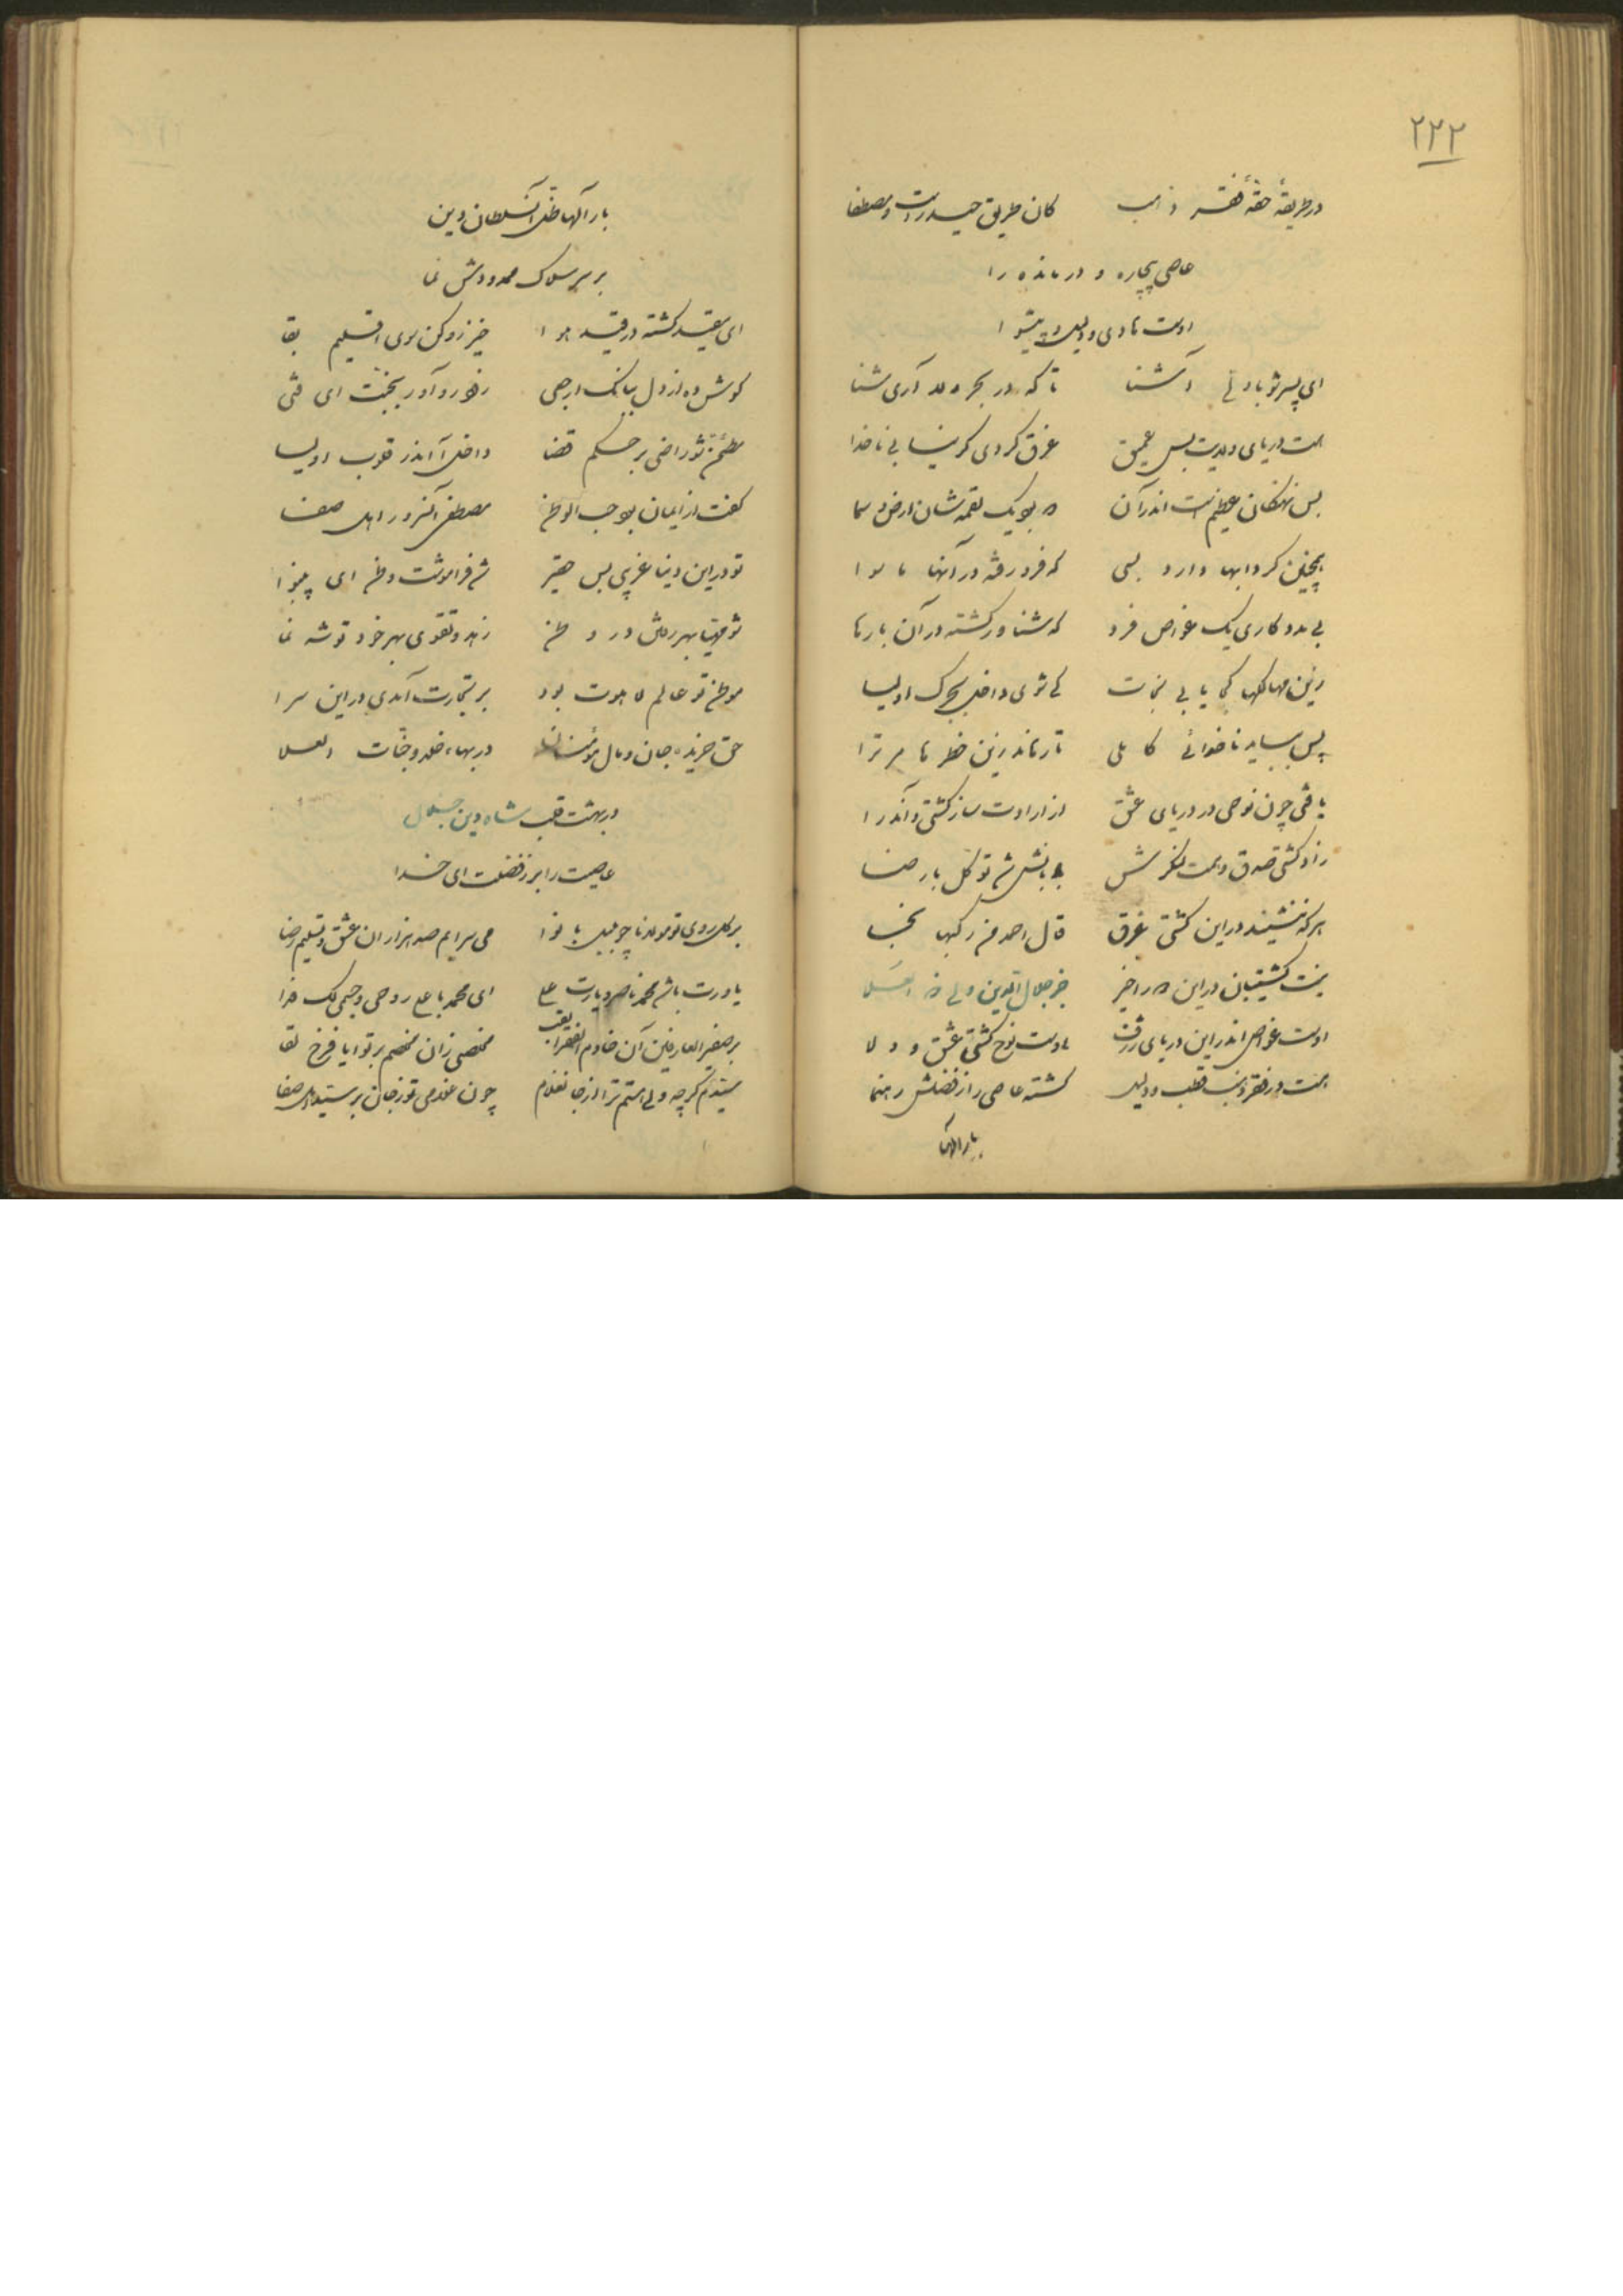 ۲۲۲
در طریقهٔ حقهٔ فقر و ادب کان طریق حیدر است و مصطفا
عاصی بیچاره و درمانده را
اوست هادی و دلیل و پیشوا
ای پسر شو با ولی آشنا تا که در بحر آری شنا
هست دریای ولایت بس عمیق غرق گردی گر نیابی ناخدا
بس نهنگان عظیم است اندر آن بود یک لقمه شان ارض و سما
همچنین گردابها دارد بسی که فرو رفته در آنها ما سوا
بی مددکاری یک غواص فرد که شناور گشته در آن بارها
زین مهالکها کجا یابی نجات کی شوی داخل ببحر اولیا
پس بباید ناخدائی کاملی تا رهاند زین خطرها مر ترا
یافتی چون نوحی در دریای عشق از ارادت ساز کشتی و اندر آ
زاد کشتی صدق و همت لنگرش بادبانش شد توکل با رضا
هر که ننشیند در این کشتی غرق قال احمد من رکبها نجا
نیست کشتیبان در این ره اخیر جز جلال الدین ولی
اوست غواص اندر این دریای ژرف اوست نوح کشتی عشق و ولا
هست در فقر و فنا قطب و دلیل گشته عاصی را ز فضلش رهنما
بارالها
بارالها ظل آن سلطان دین
بر سر سلاک ممدودش نما
ای مقید گشته در قید هوا خیز رو کن سوی اقلیم بقا
گوش ده از دل ببانک ارجعی زود رو آور بجنت ای فتی
مطمئن شو راضی بر حکم قضا داخل آ اندر قلوب اولیا
گفت از ایمان بود حب الوطن مصطفی آن سرور اهل صفا
تو در این دنیا غریبی بس حقیر شد فراموشت وطن ای بینوا
شو مهیا بهر رفتن در وطن زهد و تقوی بهر خود توشه نما
موطن تو عالم لاهوت بود بر تجارت آمدی در این سرا
حق خریده جان و مال مؤمنان در بهاء خلد و جنات العلا
در بهشت قلب شاه دین جلال
عاصیت را بر ز فضلت ای خدا
بر گل روی تو مولانا چو بلبل با نوا می سرایم صد هزاران عشق و تسلیم و رضا
یاورت باشد محمد ناصر و یارت علی ای محمد با علی روحی و جسمی لک فدا
بر صفیر العارفین آن خادم الفقرا لقب مخلصی زان مخلصم بر تو ایا فرخ لقا
سیدم گرچه ولی هستم ترا از جان غلام چون غلامی تو ز جان بر سید اهل صفا